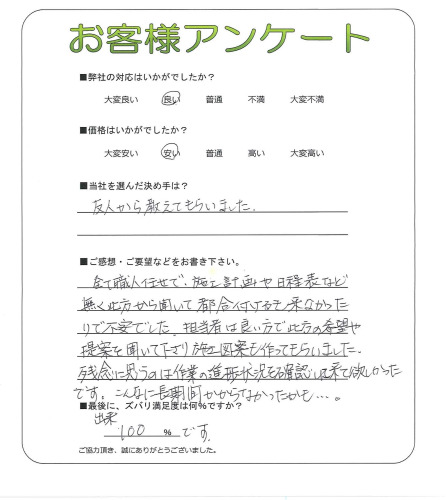 お客様アンケート
■弊社の対応はいかがでしたか？
大変良い 良い 普通 不満 大変不満
■価格はいかがでしたか？
大変安い 安い 普通 高い 大変高い
■当社を選んだ決め手は？
友人から教えてもらいました.
■ご感想・ご要望などをお書き下さい。
全て職人任せで、施工計画や日程表など
無く此方から聞いて都合付けるしか来なかった
りで不安でした. 担当者は良い方で此方の希望や
提案を聞いて下さり施工図案も作ってもらいました.
残念に思うのは作業の進捗状況を確認し来て欲しかった
です。こんなに長期間かからなかったかも…。
■最後に、ズバリ満足度は何%ですか？
出来
100 % です.
ご協力頂き、誠にありがとうございました。